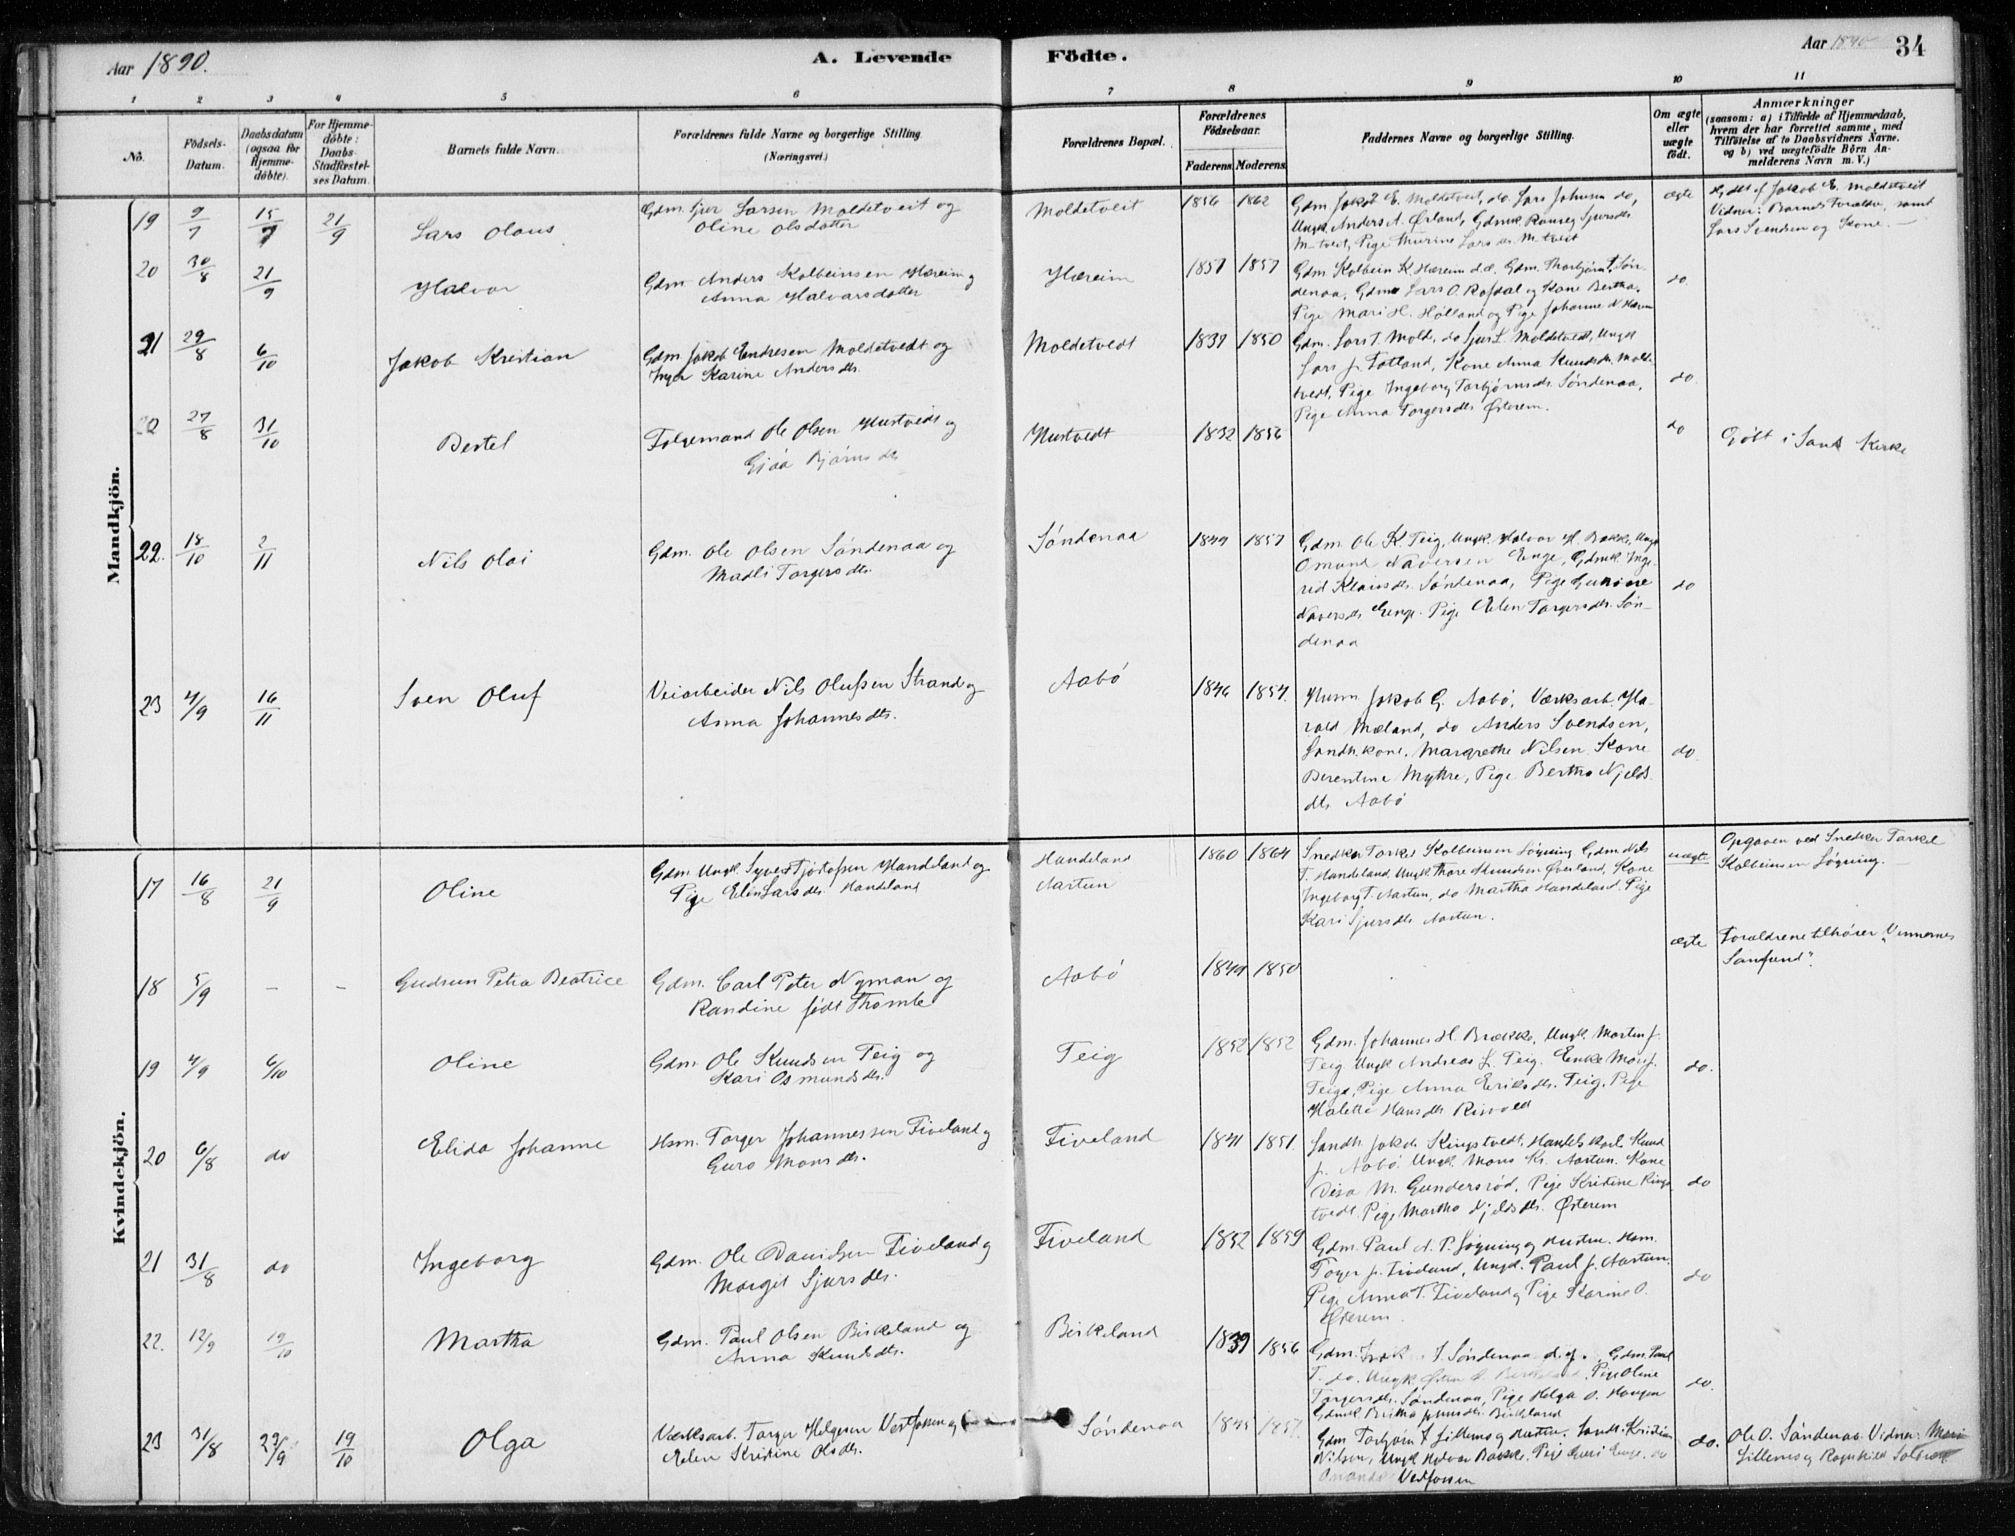 Aar 1890.
A. Levende
Födte.
Aar 1890
34
1 2 3 4 5 6 7 8 9 10 11
No.
Födsels-
Datum.
Daabsdatum
(ogsaa for
Hjemme-
döbte).
For Hjemme-
döbte:
Daabs-
Stadfæstel-
ses Datum.
Barnets fulde Navn.
Forældrenes fulde Navne og borgerlige Stilling
(Næringsvei.)
Forældrenes Bopæl.
Forældrenes
Födselsaar.
Faderens. Moderens.
Faddernes Navne og borgerlige Stilling.
Om ægte
eller
uægte
födt.
Anmærkninger
(saasom: a) i Tilfælde af Hjemmedaab,
hvem der har forrettet samme, med
Tilföielse af to Daabsvidners Navne,
og b) ved uægtefödte Börn An-
melderens Navn m. V.)
Mandkjön.
19 9/7 15/7 21/9 Lars Olaus
Gdm. Sjur Larsen Moldetveit og
Oline Olsdatter
Moldetveit 1856 1862
Gdm. Jakob E. Moldetveit, do. Lars Johnsen do,
Ungk. Anders A. Ørland, Gdmk. Ranveg Sjursdtr
M-tveit, Pige Thurine Larsdtr M-tveit
ægte
Hjdbt af Jakob E. Moldetveit
Vidner: Barnets Forældre, samt
Lars Svendsen og Kone. —
20 30/8 21/9 Halvor
Gdm. Anders Kolbeinsen Hæreim og
Anna Halvarsdatter
Hæreim 1857 1857
Gdm Kolbein K. Hæreim d.æ. Gdm. Thorbjørn T. Søn-
denaa, Gdm Lars O. Rafdal og Kone Bertha,
Pige Mari H. Hølland og Pige Johanne N Hæreim
do.
21 29/8 6/10 Jakob Kristian
Gdm. Jakob Endresen Moldetvedt og
Inger Karine Andersdtr.
Moldetvedt 1839 1850
Gdm. Lars T. Molde, do Sjur L. Moldetvedt, Ungk
Lars J. Fatland, Kone Anna Knudsdtr. Molde-
tvedt, Pige Ingeborg Torbjørnsdtr. Søndenaa,
Pige Anna Torgersdtr Østerem.
do.
27/8 31/10 Bertel
Følgemand Ole Olsen Hustvedt og
Gjøa Bjørnsdtr
Hustvedt 1832 1856
do
Døbt i Sand Kirke
22. 18/10 2/11 Nils Olai
Gdm. Ole Olsen Søndenaa og
Madli Torgersdtr.
Søndenaa 1849 1857
Gdm. Ole K Teig, Ungk. Halvor H. Bakke, Ungk
Omund Naversen Enge, Gdmk. Inge-
rid Klausdtr. Søndenaa, Pige Gurine
Naversdtr Enge. Pige Elen Torgersdtr. Søn-
denaa
do
23 4/9 16/11 Sven Oluf
Veiarbeider Nils Olufsen Strand og
Anna Johannesdtr.
Aabø 1846 1854.
Husm. Jakob G. Aabø, Værksarb. Ha-
rald Mæland, do Anders Svendsen,
Landh. kone. Margrethe Nilsen Kone
Berentine Myhre, Pige Bertha Njelds-
dtr Aabø
do.
Kvindekjön.
17 16/8 21/9 Oline
Gdm Ungk. Syvert Tjøtofsen Handeland og
Pige Elin Larsdtr. Handeland
Handeland
Aartun
1860 1864
Snedker Torkel Kolbeinsen Søgning Gdm. Nils
T. Handeland, Ungk Thore Amundsen Øverland, Kone
Ingeborg T. Aartun, do Martha Handeland. Pige
Kari Sjursdtr Aartun.
uægte
Opgaven ved Snedker Torkel
Kolbeinsen Søgning.
18 5/9 - - Gudrun Petra Beatrice
Gdm. Carl Peter Nyman og
Randine født Thomle
Aabø 1849 1850
ægte
Forældrene tilhører "Vennernes
Samfund".
19 4/9 6/10 Oline
Gdm. Ole Knudsen Teig og
Kari Osmundsdtr.
Teig 1852 1852
Gdm. Johannes H. Brække, Ungk. Morten J.
Teig Ungk Andreas L. Teig. Enke Mari J.
Teige, Pige Anna Eriksdtr. Teig. Pige
Halette Hansdtr Risvold
do.
20 6/8 do Elida Johanne
Hsm. Torger Johannessen Fiveland og
Guro Monsdtr.
Fiveland 1841 1851.
Landh. Jakob Ringstvedt, Handelskarl Knud
J. Aabø. Ungk. Mons Kr. Aartun. Kone
Disa M. Gundersrød, Pige Kristine Rings-
tvedt. Pige Martha Njeldsdtr. Østerem
do
21 31/8 do Ingeborg
Gdm. Ole Davidsen Fiveland og
Margit Sjursdtr.
Fiveland 1852 1859
Gdm. Paul A. P. Søgning og Hustru. Hsm.
Torger J. Fiveland, Ungk. Paul J. Aartun.
Pige Anna T. Fiveland og Pige Karine O.
Østerem.
do
22. 12/9 19/10 Martha
Gdm. Paul Olsen Birkeland og
Anna Knudsdtr.
Birkeland 1839 1856
Gdm. T. Søndenaa d. y. Gdm. Paul
T. do. Ungk Østen O. Birkeland, Pige Oline
Torgersdtr. Søndenaa, Pige Helga O. Haugen
Gdmk Britha Birkeland
do.
23 31/8 29/9 19/10 Olga
Værksarb. Torger Helgesen Vestfossen og
Elen Kristine Olsdtr.
Søndenaa 1845 1857.
Gdm Torbjørn T Lillemo og Hustru. Landh. Kristian
Nilsen, Ungk Halvor Bakke. Pige Guri Enge. do
Amanda Vestfossen
do.
Ole O. Søndenaa. Vidner: Mari
Lillemo og Ragnhild